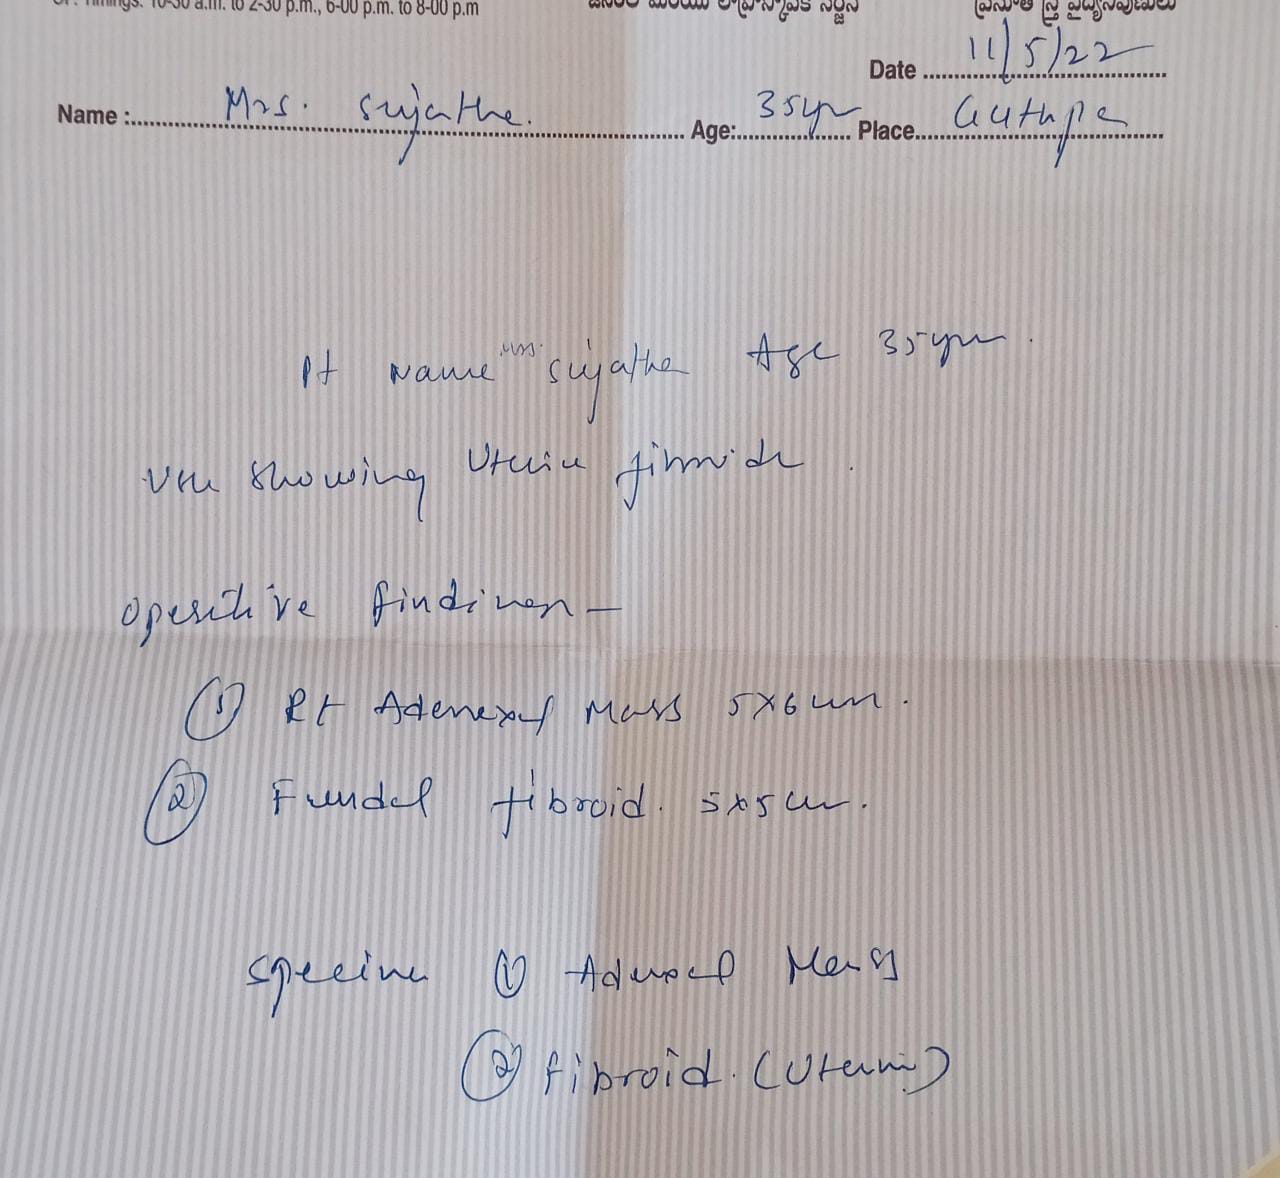 Timings: 10-30 a.m. to 2-30 p.m., 6-00 p.m. to 8-00 p.m
జనరల్ మరియు లాప్రోస్కోపిక్ సర్జన్
ప్రసూతి స్త్రీ వైద్యనిపుణులు
Date 11/5/22
Name : Mrs. Sujatha. Age: 35yr Place
Pt Name Mrs. Sujatha Age 35yrs.
showing Uterine fibroids.
Operative findings –
① Rt Adenexal Mass 5x6 cm.
② Fundal fibroid. 5x5 cm.
Specimen ① Adnexal Mass
② fibroid. (Uterine)